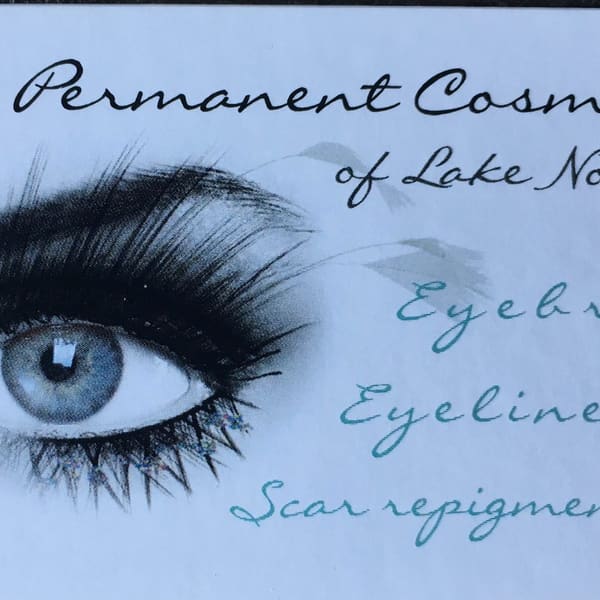 Permanent Cosm
of Lake No
Eyebr
Eyeline
Scar repigmen